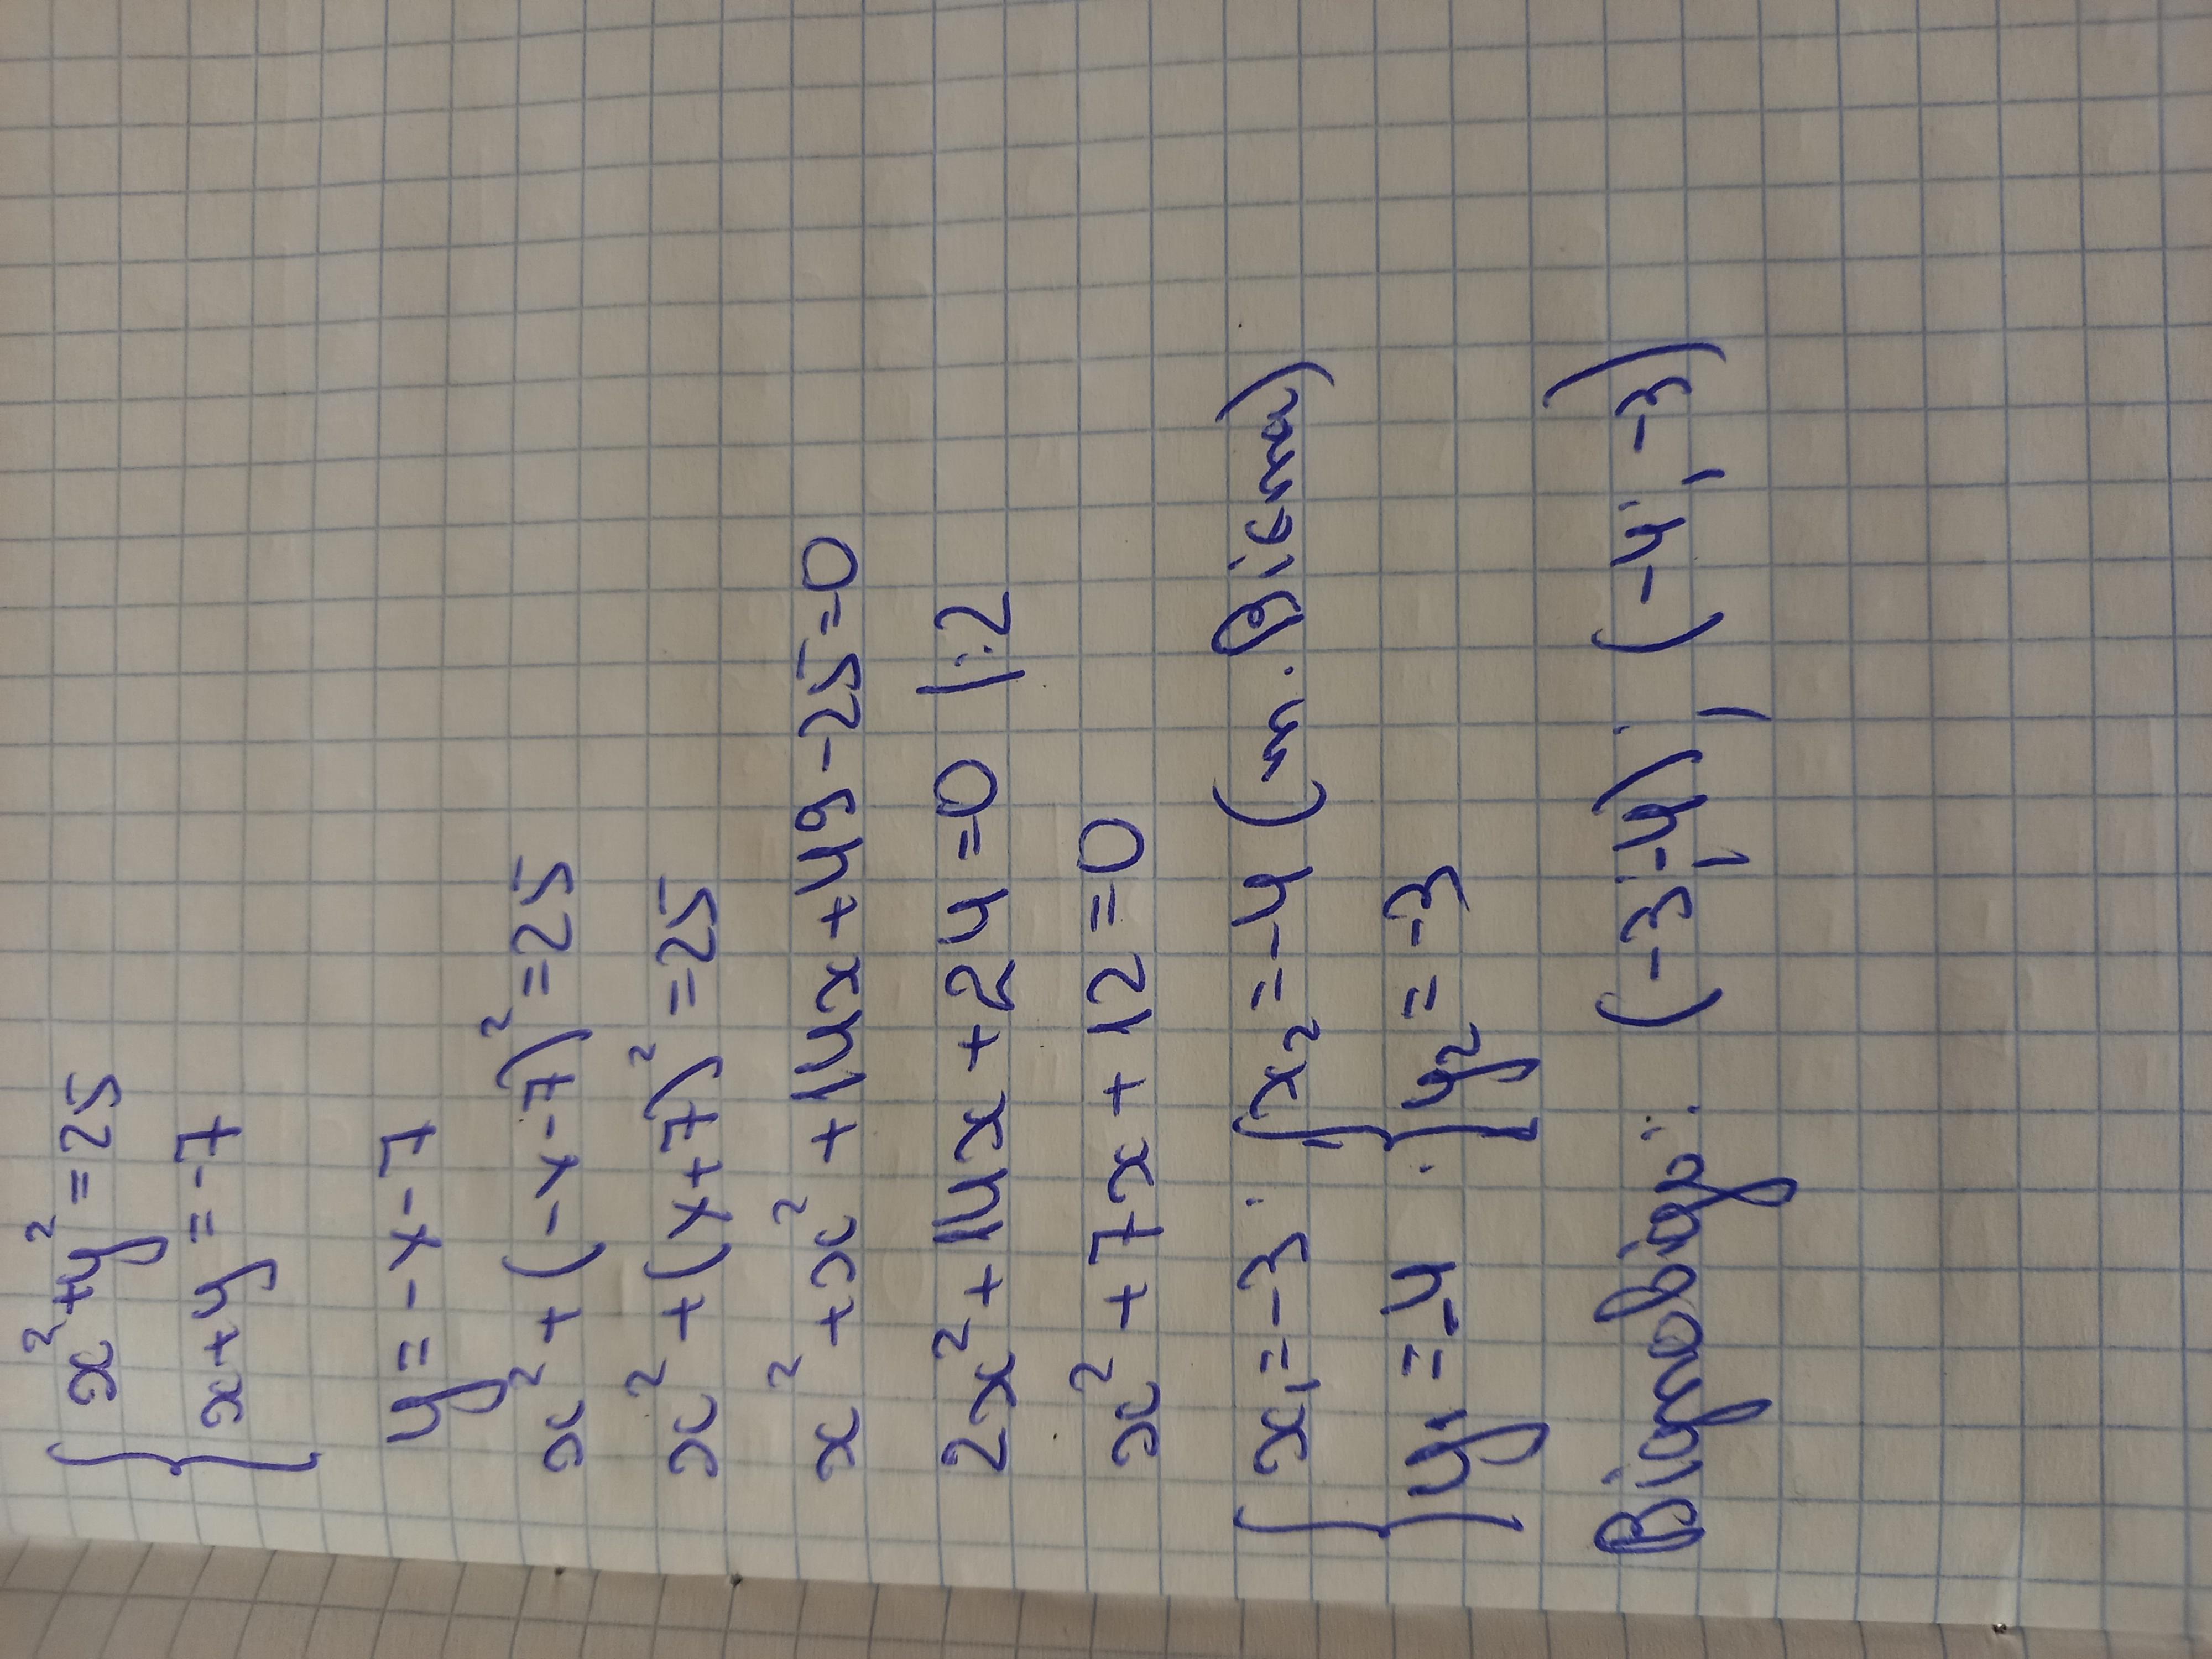 { x²+y²=25
x+y=-7
y=-x-7
x²+(-x-7)²=25
x²+(x+7)²=25
x²+x²+14x+49-25=0
2x²+14x+24=0 |:2
x²+7x+12=0
{ x₁=-3 ; { x₂=-4 (т. Вієта)
y₁=-4 ; y₂=-3
Відповідь: (-3;-4); (-4;-3)